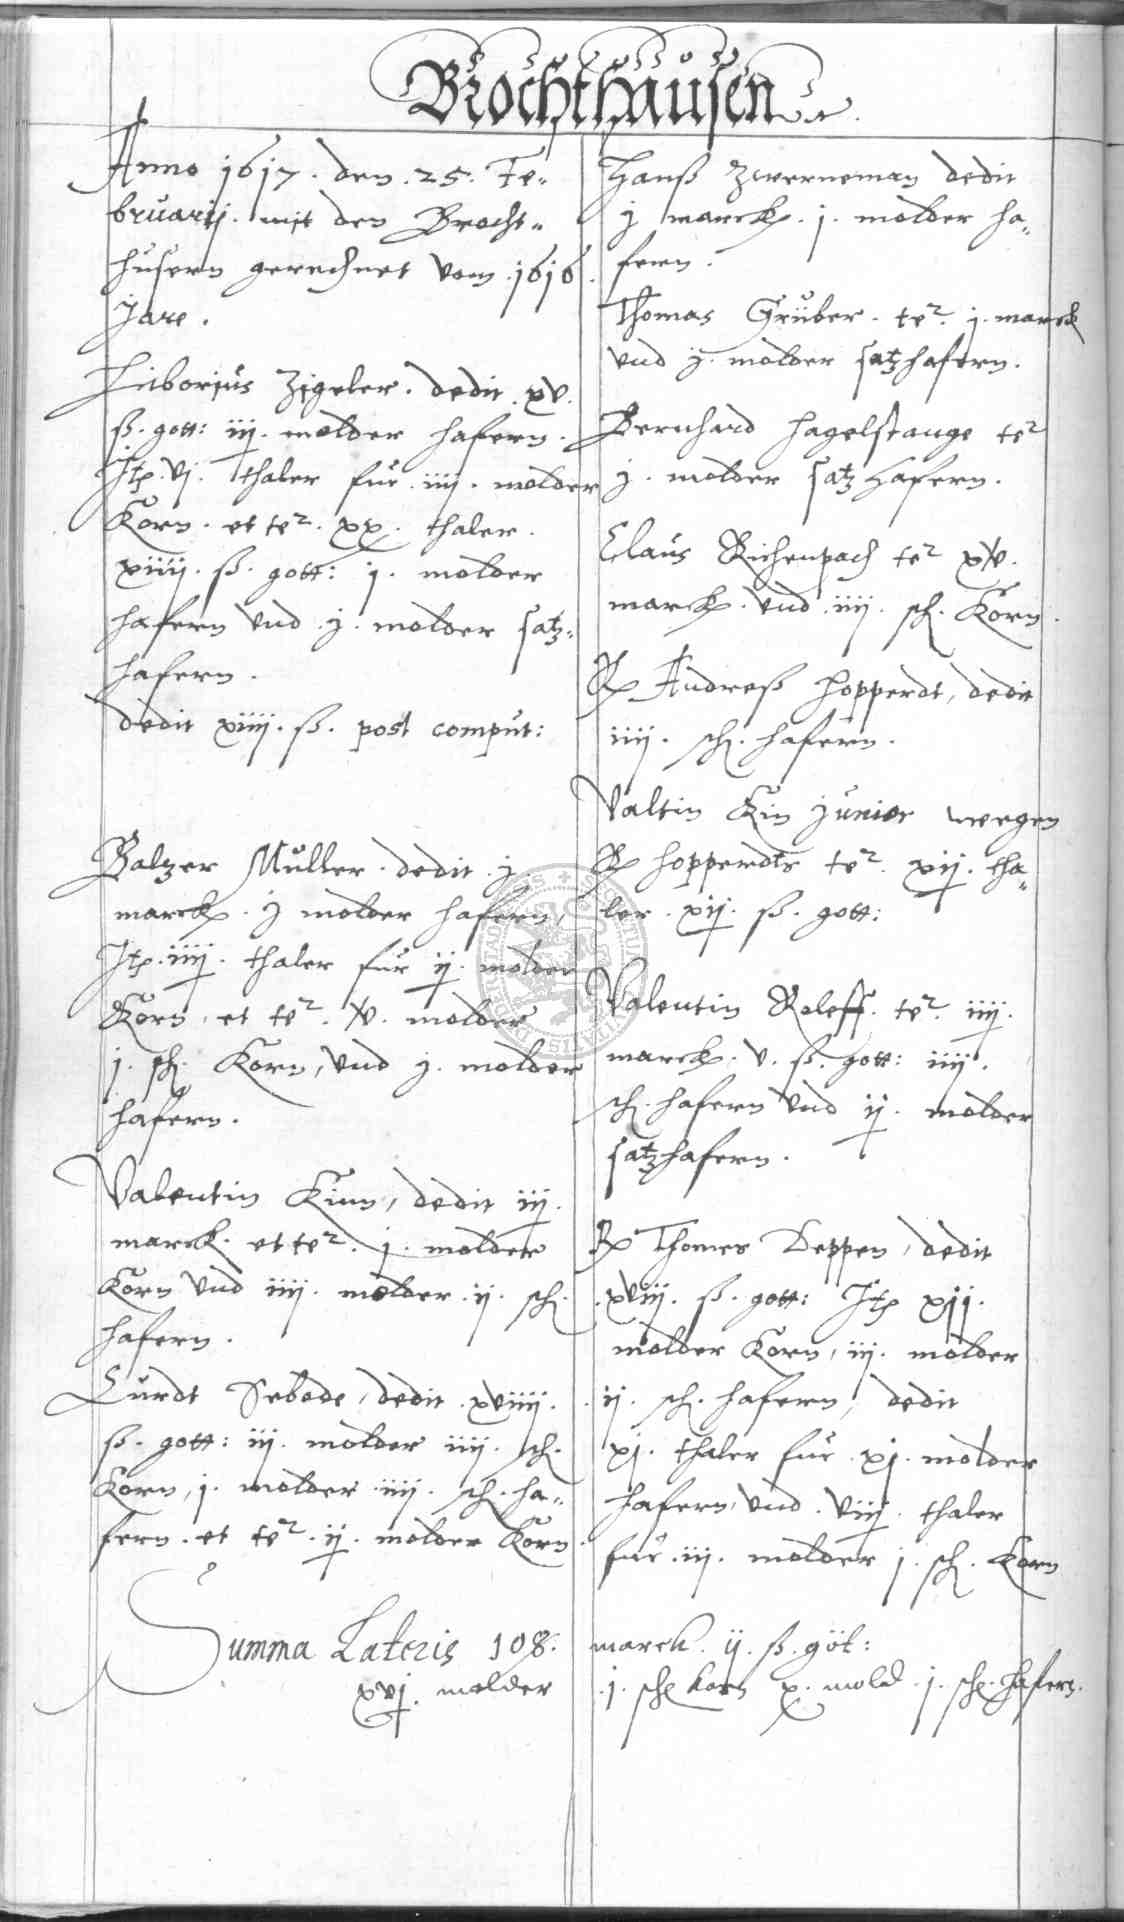 Brochthausen
Anno 1617. den. 25. Fe-
bruarij. mit den Brocht-
husern gerechnet vom 1616.
Jare.
Liborius Zigeler. dedit xv.
ß. gott: iij. molder hafern.
Itp. vj. thaler fur iiij. molder
Korn. et te2. xx. thaler.
xiiij. ß. gott: j. molder
hafern und j. molder satz-
hafern.
dedit xiiij. ß. post comput:
Balzer Muller. dedit j.
marck. j molder hafern,
Itp. iiij. thaler fur ij. molder
Korn, et te2. v. molder
j. sch. Korn, und j. molder
hafern.
Valentin Kinn, dedit iij.
marck. et te2. j. molder
Korn und iiij. molder. ij. sch.
hafern.
Curdt Sebode, dedit xviiij.
ß. gott: iij. molder iiij. sch.
Korn, j. molder iiij. sch. ha-
fern. et te2. ij. molder Korn.
Hanß Zwerneman dedit
j marck. j. molder ha-
fern.
Thomas Grüber. te2. j. marck
und j. molder satzhafern.
Bernhard Hagelstange te2
j. molder satz hafern.
Claus Richenpach te2 xv.
marck. und iiij. sch. Korn.
R Andreß Hopperdt, dedit
iiij. sch. hafern.
Valtin Kin junior wegen
R Hopperdts te2. xij. tha-
ler. xij. ß. gott:
Valentin Roleff. te2. iiij.
marck. v. ß. gott: iiij.
sch. hafern und ij. molder
satzhafern.
R Thomes Deppen, dedit
xviij. ß. gott: Itp xij.
molder Korn, iij. molder
ij. sch. hafern, dedit
xj. thaler fur xj. molder
hafern, und viij. thaler
fur iij. molder j. sch. Korn
Summa Lateris 108. marck. ij. ß. göt:
xvj. molder j. sch Korn x. mold j. sch. hafern.